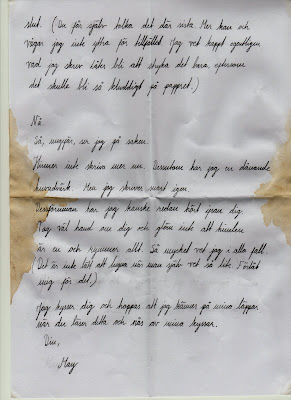 slut. (Du får själv tolka det där sista. Mer kan och
vågar jag inte yttra för tillfället. Jag vet knappt egentligen
vad jag skriv låter bli att stryka det bara eftersom
det skulle bli så kluddigt på pappret.)
Nå.
Så, ungefär, ser jag på saken.
Hinner inte skriva mer nu. Dessutom har jag en dånande
huvudvärk. Men jag skriver snart igen.
Dessförinnan har jag kanske redan hört ifrån dig.
Tag väl hand om dig och glöm inte att himlen
är en och rymmer allt. Så mycket vet jag i alla fall.
(Det är inte lätt att ljuga när man själv vet så lite. Förlåt
mig för det.)
Jag kysser dig och hoppas att jag känner på mina läppar
när du läser detta och nås av mina kyssar.
Din,
May